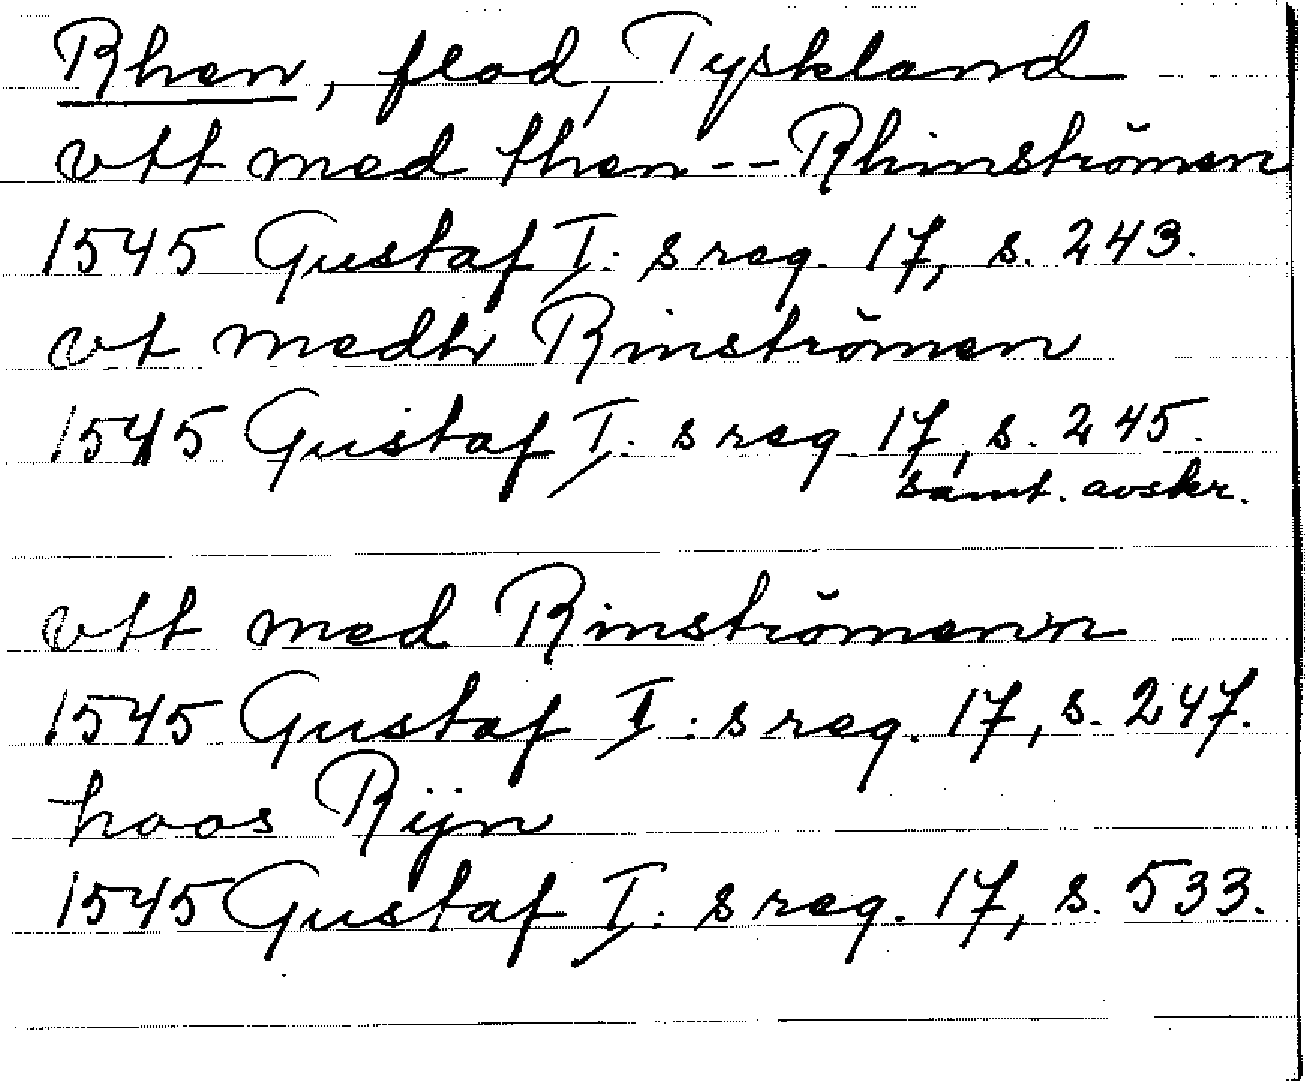 Rhen, flod, Tyskland
vtt med then -- Rhinströmen
1545 Gustaf I:s reg. 17, s. 243.
vt medh Rinströmen
1545 Gustaf I:s reg. 17, s. 245.
samt. avskr.
vtt med Rinströmenn
1545 Gustaf I:s reg. 17, s. 247.
hoos Rijn
1545 Gustaf I:s reg. 17, s. 533.